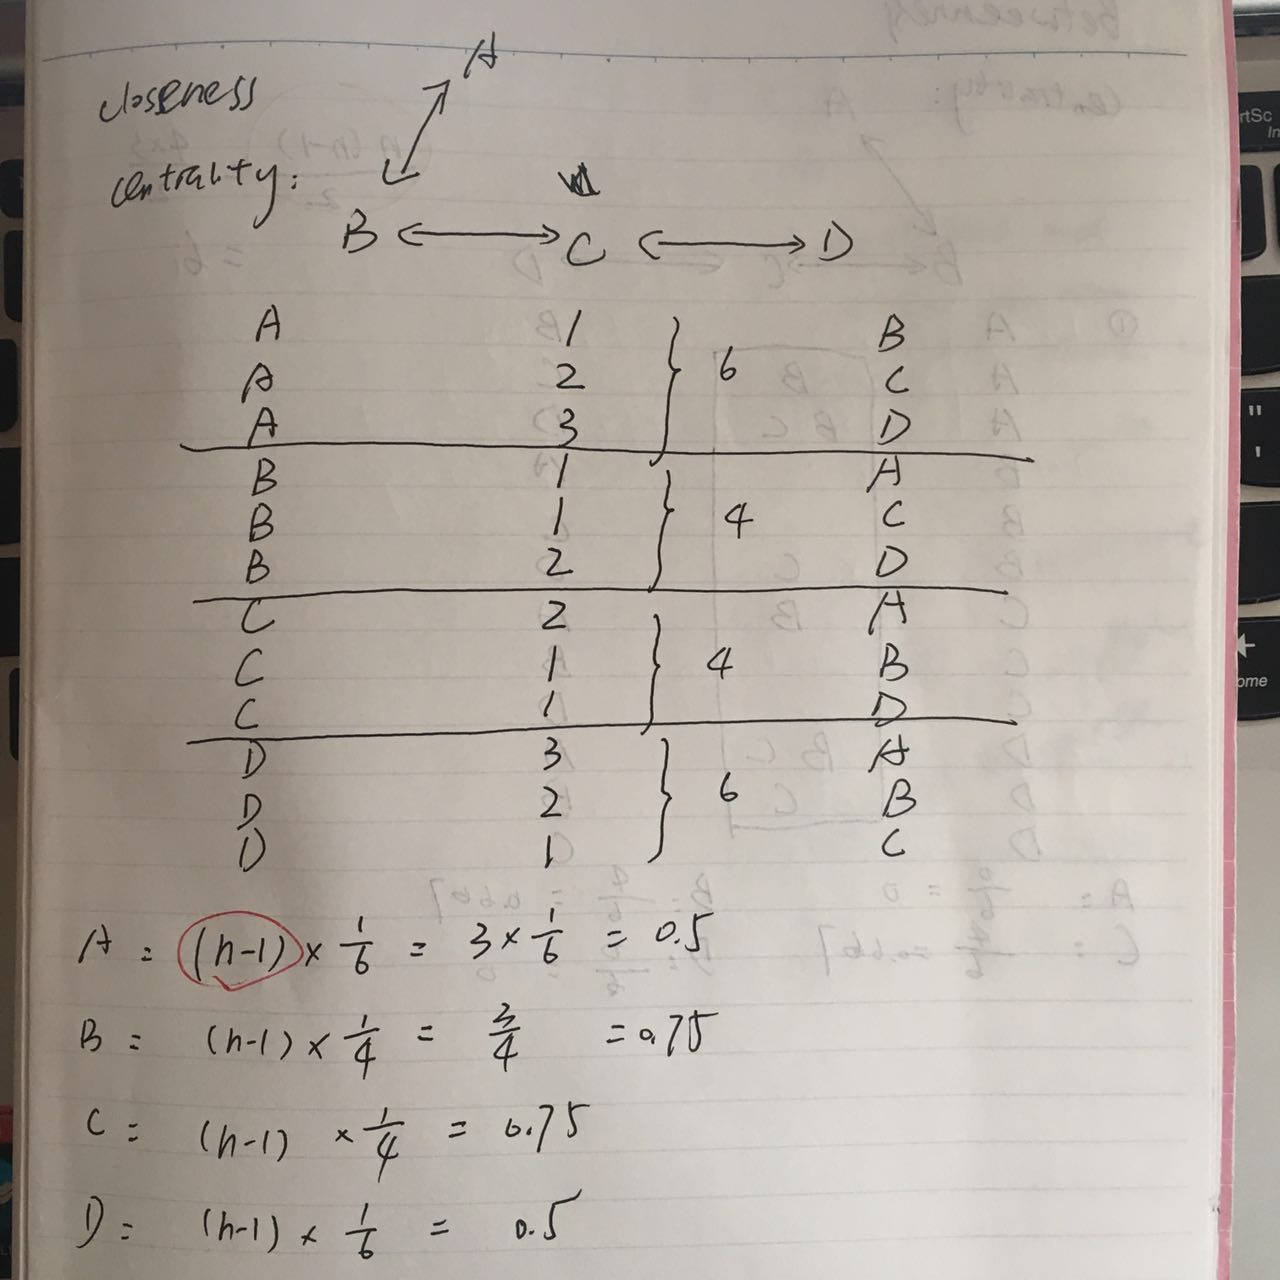 closeness
centrality:
A
B C D
A 1 B
A 2 } 6 C
A 3 D
B 1 A
B 1 } 4 C
B 2 D
C 2 A
C 1 } 4 B
C 1 D
D 3 A
D 2 } 6 B
D 1 C
A = (n-1) × 1/6 = 3 × 1/6 = 0.5
B = (n-1) × 1/4 = 3/4 = 0.75
C = (n-1) × 1/4 = 0.75
D = (n-1) × 1/6 = 0.5